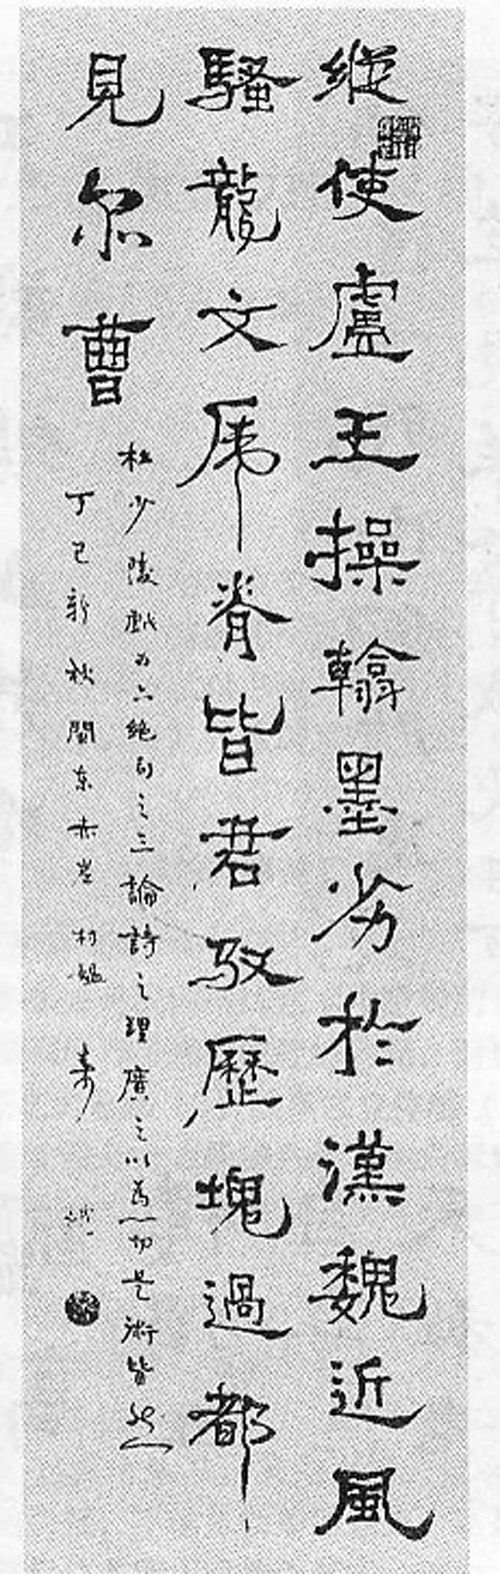 縱使盧王操翰墨劣於漢魏近風
騷龍文虎脊皆君馭歷塊過都
見尔曹
杜少陵戲为六絶句之三論詩之理廣之以為一切藝術皆然
丁巳新秋閩東